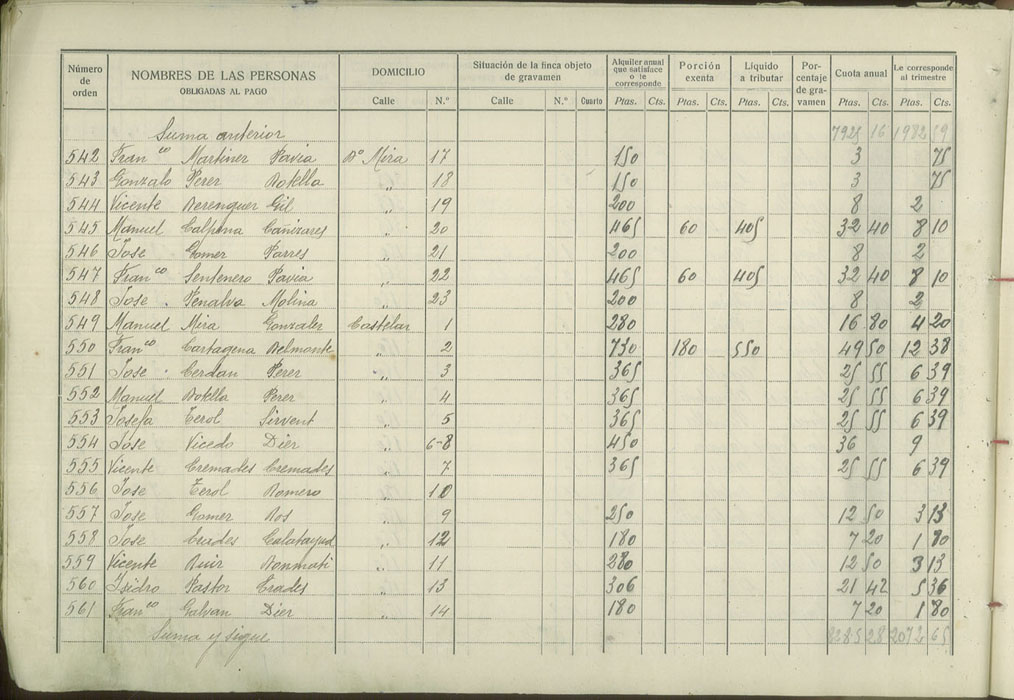 Número de orden
NOMBRES DE LAS PERSONAS
OBLIGADAS AL PAGO
DOMICILIO
Calle N.º
Situación de la finca objeto de gravamen
Calle N.º Cuarto
Alquiler anual que satisface o le corresponde
Ptas. Cts.
Porción exenta
Ptas. Cts.
Líquido a tributar
Ptas. Cts.
Porcentaje de gravamen
Cuota anual
Ptas. Cts.
Le corresponde al trimestre
Ptas. Cts.
Suma anterior 16 1982
542 Franco Martinez Pavia Dº Mira 17 150 3 75
543 Gonzalo Perez Botella „ 18 150 3 75
544 Vicente Berenguer Gil „ 19 200 8 2
545 Manuel Calpena Cañizares „ 20 465 60 405 32 40 8 10
546 Jose Gomez Parres „ 21 200 8 2
547 Franco Sentenero Pavia „ 22 465 60 405 32 40 8 10
548 Jose Penalva Molina „ 23 200 8 2
549 Manuel Mira Gonzalez Castelar 1 280 16 80 4 20
550 Franco Cartagena Belmonte „ 2 730 180 550 49 50 12 38
551 Jose Cerdan Perez „ 3 365 25 55 6 39
552 Manuel Botella Perez „ 4 365 25 55 6 39
553 Josefa Terol Sirvent „ 5 365 25 55 6 39
554 Jose Vicedo Diez „ 6-8 450 36 9
555 Vicente Cremades Cremades „ 7 365 25 55 6 39
556 Jose Terol Romero „ 10
557 Jose Gomez Ros „ 9 250 12 50 3 13
558 Jose Calatayud „ 12 180 7 20 1 80
559 Vicente Ruiz Bonmati „ 11 280 12 50 3 13
560 Isidro Pastor Prades „ 13 306 21 42 5 36
561 Franco Galvan Diez „ 14 180 7 20 1 80
Suma y sigue 28 2072 65